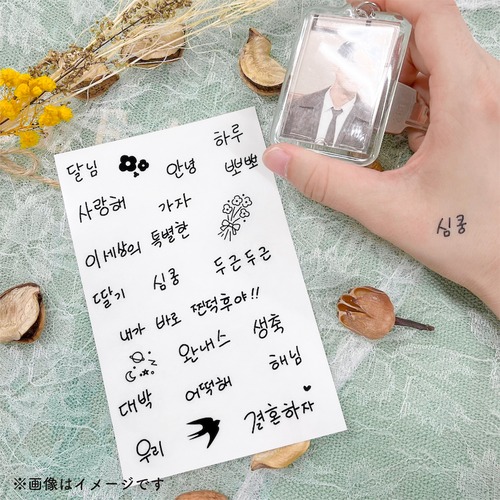 하루
달님 안녕 뽀뽀
사랑해 가자
이 세상의 특별한
딸기 심쿵 두근두근
내가 바로 찐덕후야!!
완내스 생축
대박 어떡해 해님
우리 결혼하자
심쿵
※画像はイメージです